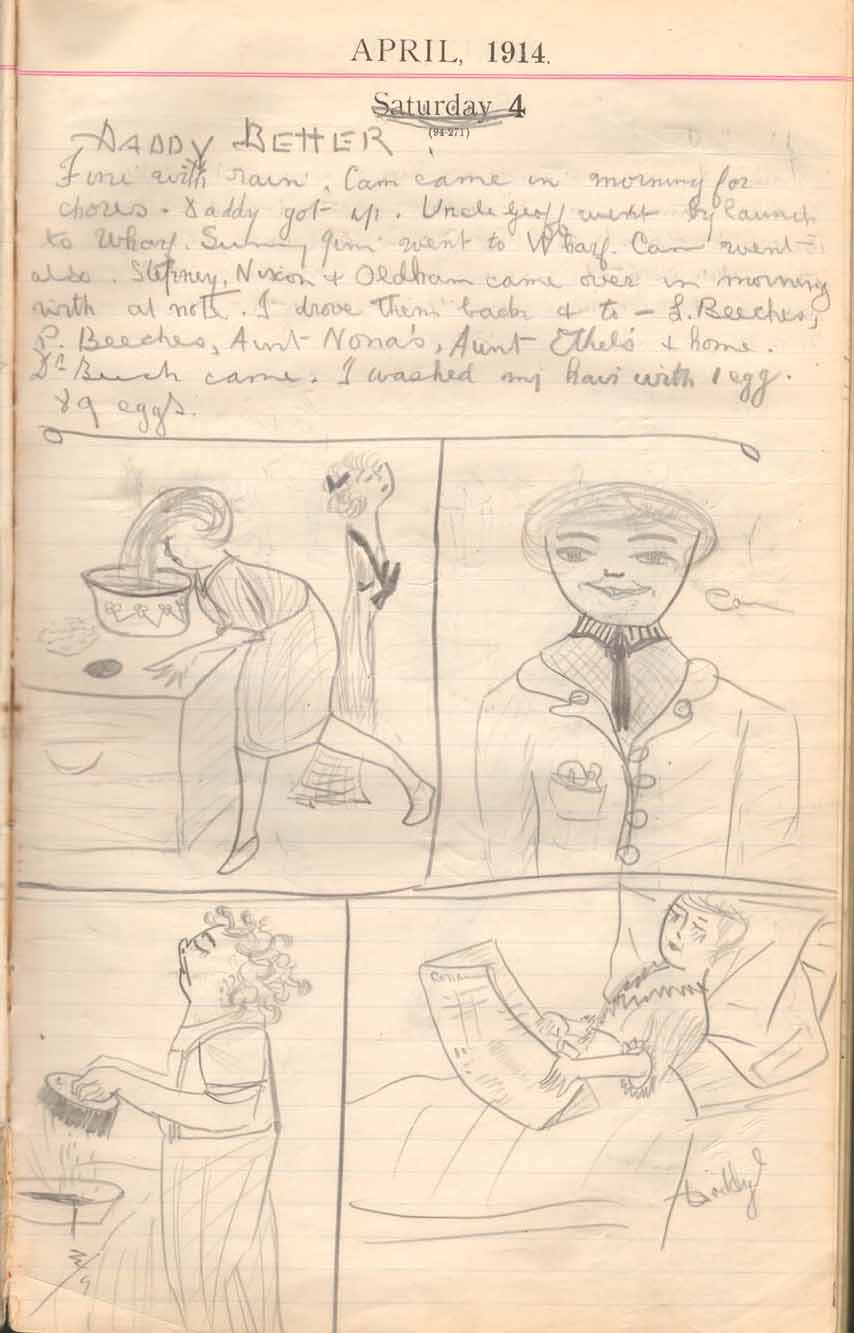 APRIL, 1914.
Saturday 4
(94-271)
DADDY BETTER
Fine with rain. Cam came in morning for
chores. Daddy got up. Uncle Geoff went by launch
to Wharf. Sunny Jim went to Wharf. Cam went
also. Stepney, Nixon & Oldham came over in morning
with a note. I drove them back & to – L. Beeches,
P. Beeches, Aunt Nona's, Aunt Ethel's & home.
Dr came. I washed my hair with 1 egg.
89 eggs.
Cam